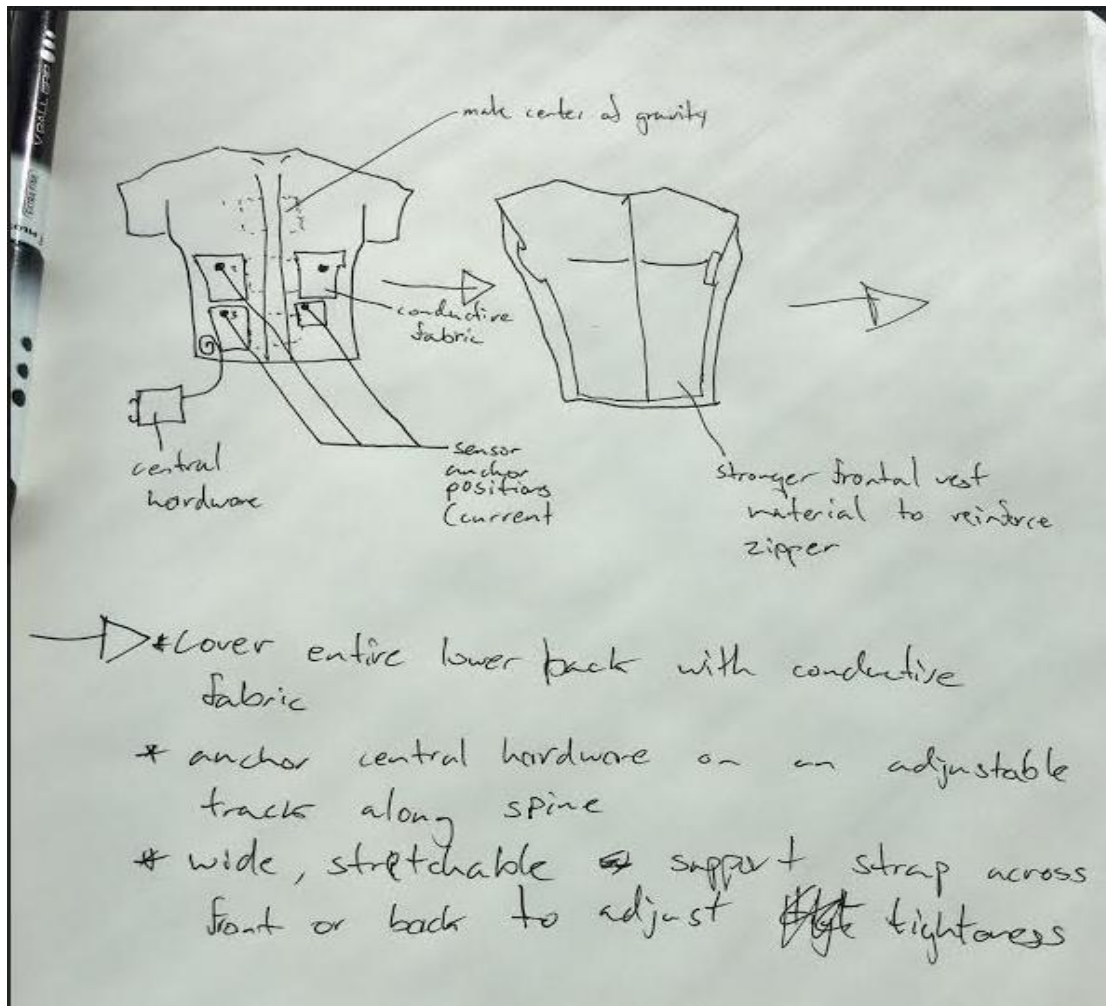 make center of gravity
conductive
fabric
central
hardware
sensor
anchor
positions
(current
stronger frontal vest
material to reinforce
zipper
* Cover entire lower back with conductive
fabric
* anchor central hardware on an adjustable
track along spine
* wide, stretchable support strap across
front or back to adjust tightness
V BALL